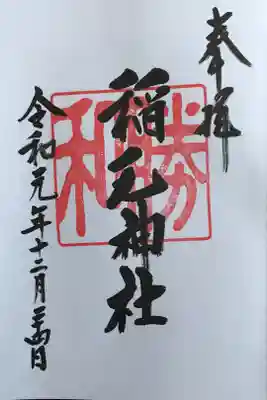 奉拝
稲毛神社
令和元年十二月